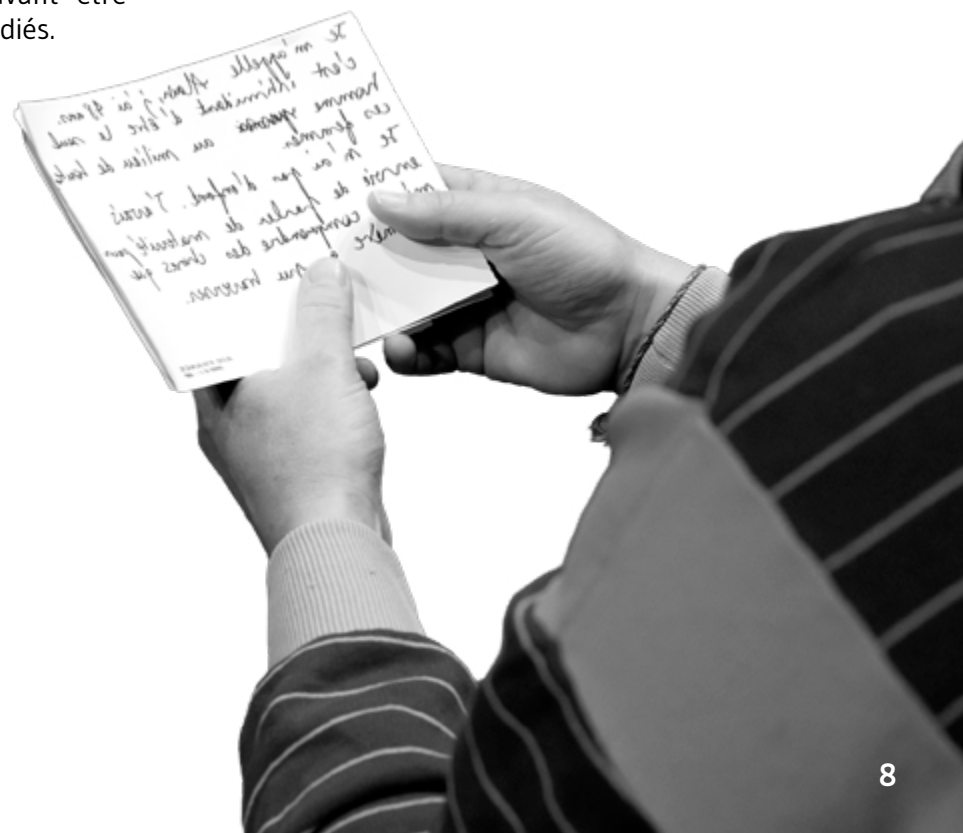 être
diés.
Je m'appelle Alain, j'ai ans.
c'est intimidant d'être le seul
homme au milieu de toutes
ces femmes.
Je n'ai pas d'enfant. J'avais
envie de parler de maternité pour
comprendre des choses que
traverser.
8